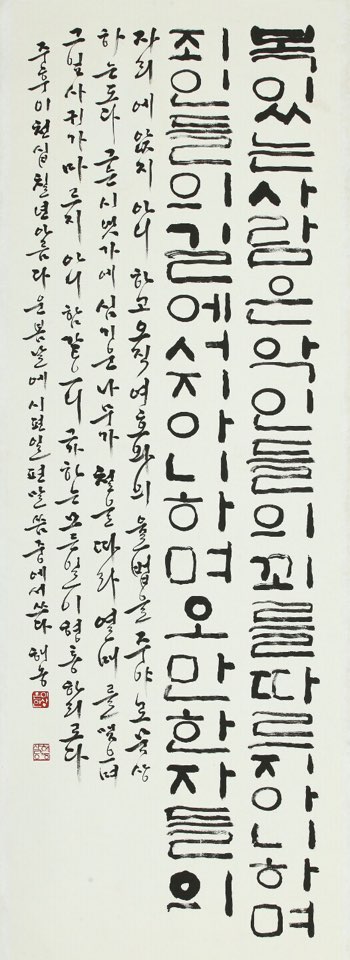 복있는사람은악인들의꾀를따르지아니하며
죄인들의길에서지아니하며오만한자들의
자리에 앉지 아니 하고 오직 여호와의 율법을 주야로 묵상
하는도다 그는 시냇가에 심기운 나무가 철을 따라 열매를 맺으며
그 잎사귀가 마르지 아니 함 같으니 그가 하는 모든 일이 형통하리로다
주후 이천십칠년 아름다운 봄날에 시편 일편 말씀 중에서 쓰다